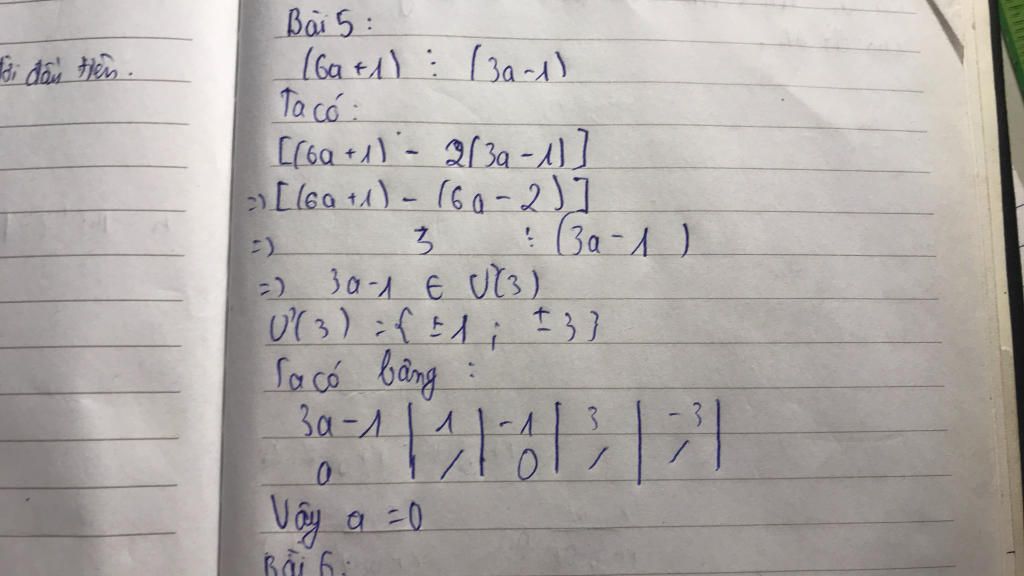 ời đầu tiên.
Bài 5:
(6a+1) ⋮ (3a-1)
Ta có:
[(6a+1) - 2(3a-1)]
=> [(6a+1) - (6a-2)]
=> 3 ⋮ (3a-1)
=> 3a-1 ∈ Ư(3)
Ư(3) = { ±1 ; ±3}
Ta có bảng:
3a-1 | 1 | -1 | 3 | -3 |
a | / | 0 | / | / |
Vậy a = 0
Bài 6: